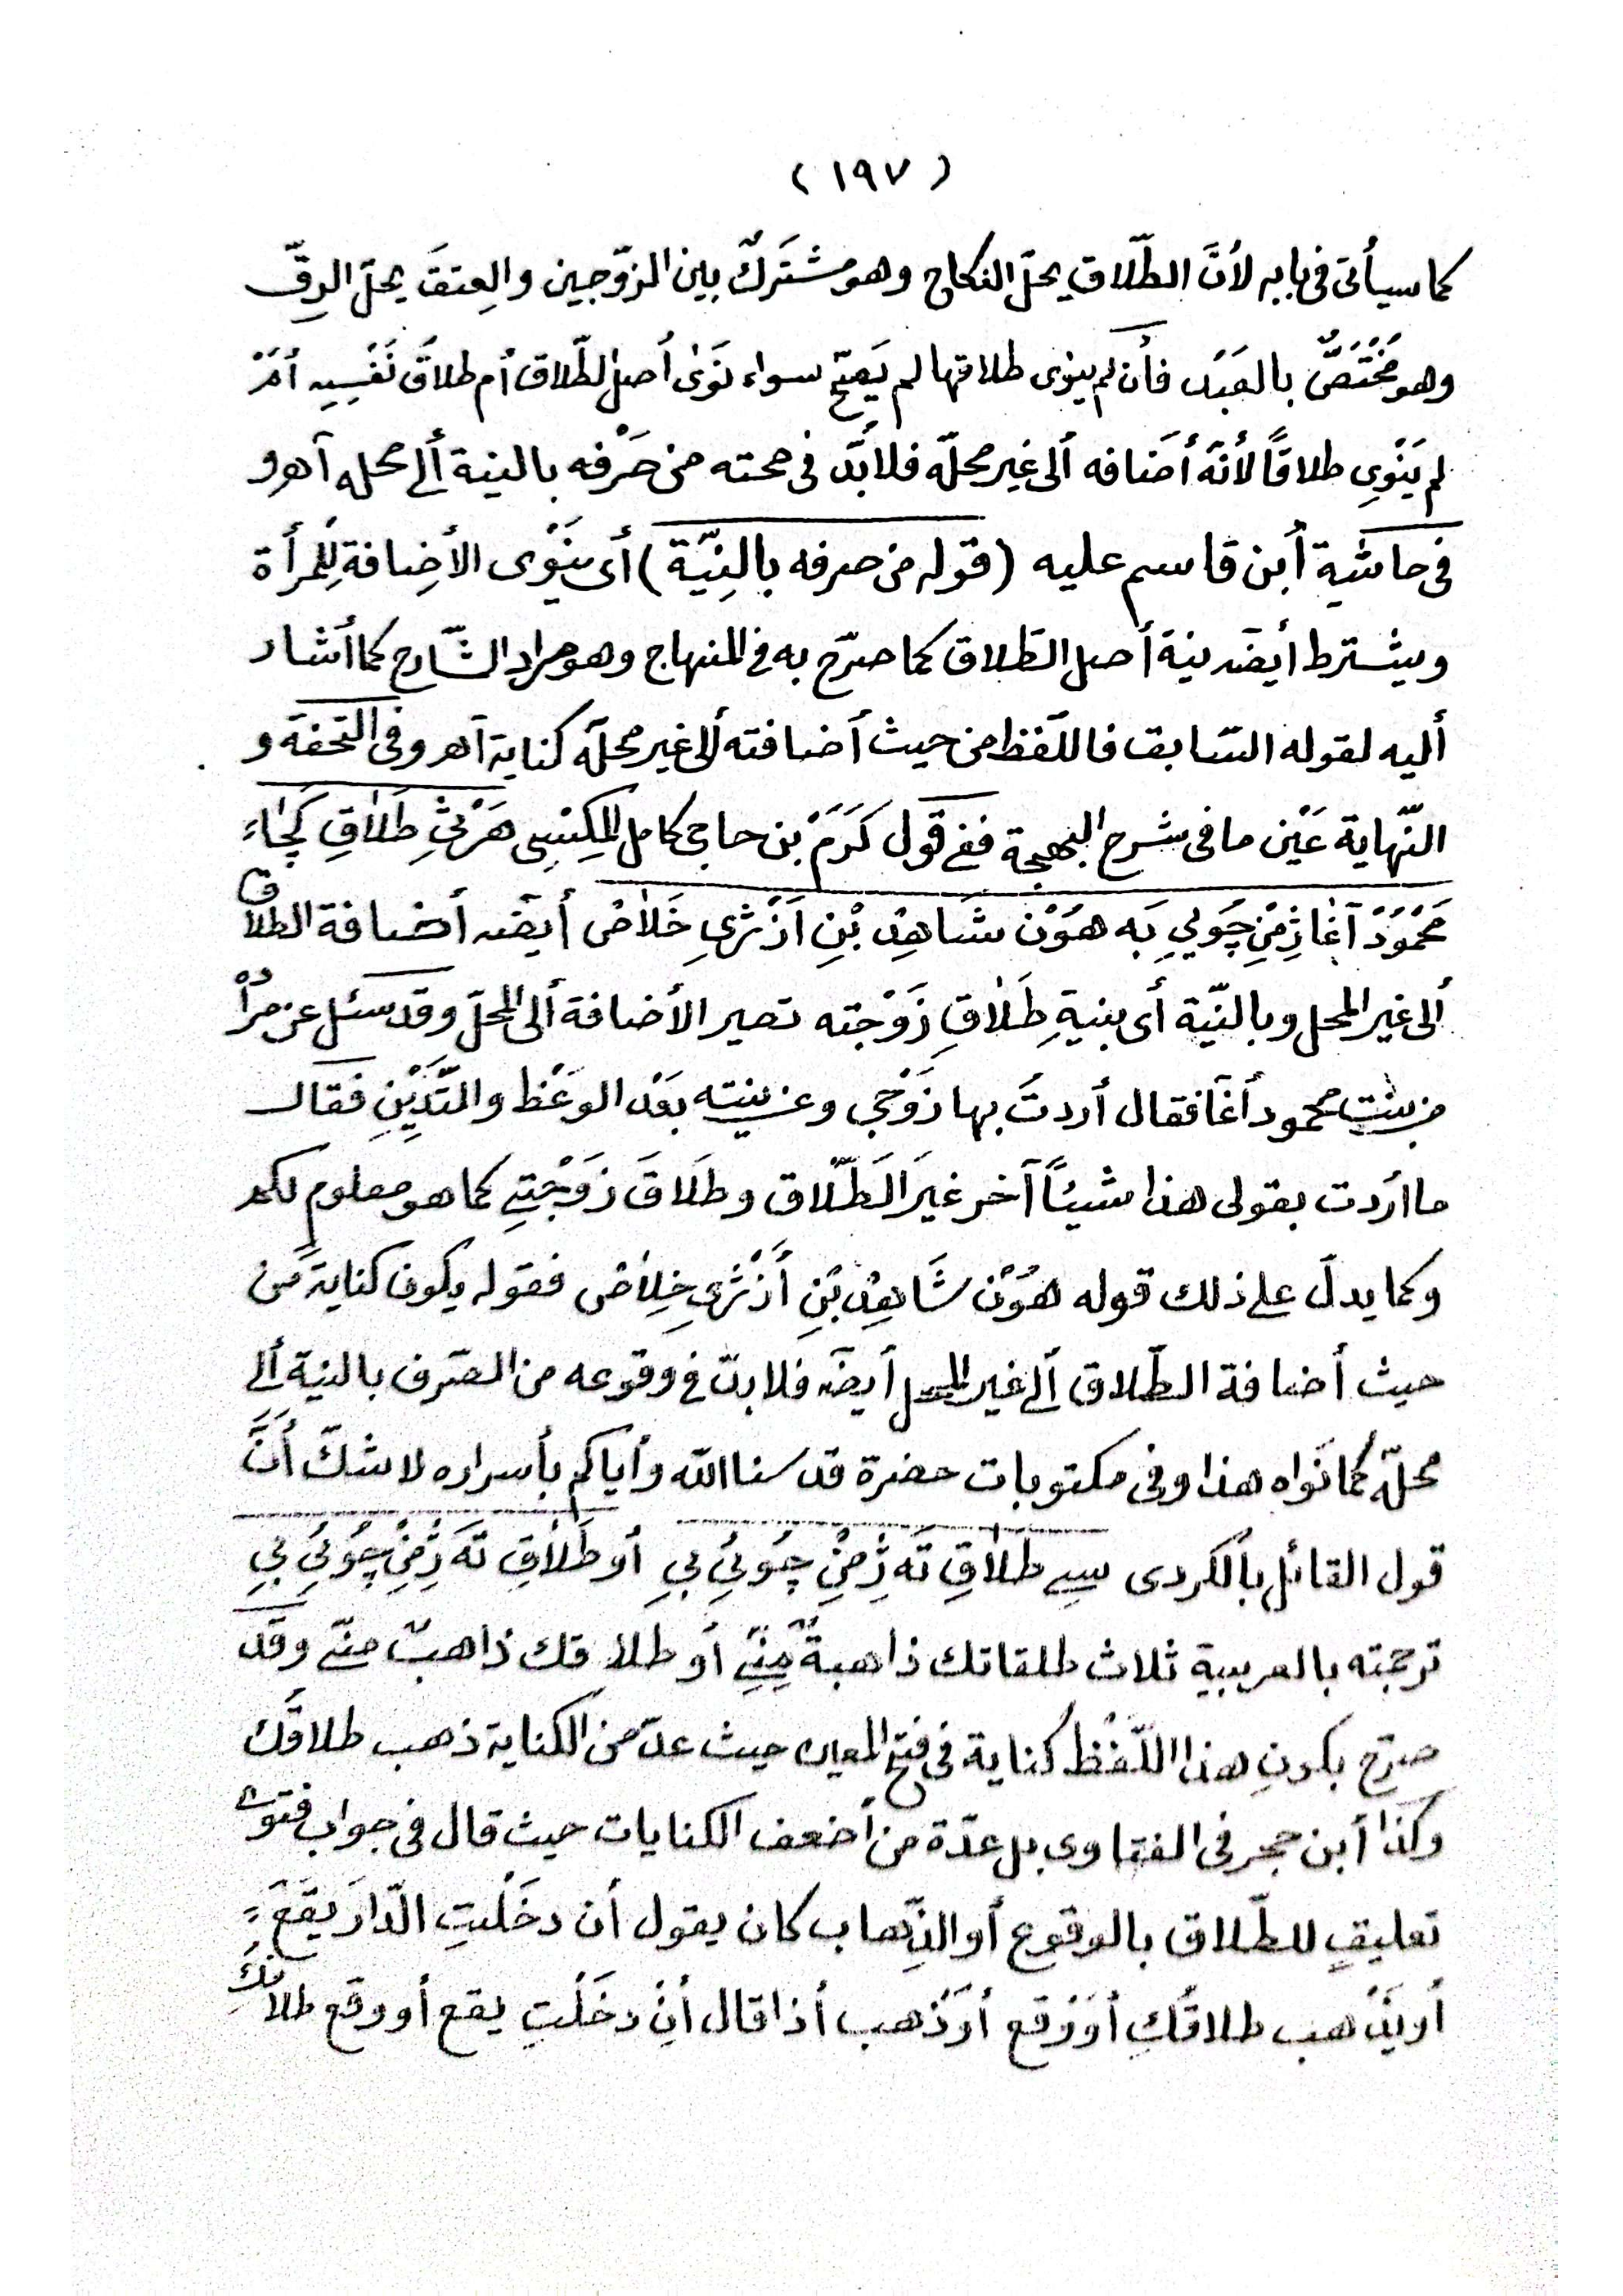 ( ١٩٧ )
كما سيأتى فى بابه لأنَّ الطّلاق يحلّ النكاح وهو مشتَركٌ بين الزّوجين والعِتقَ يحلّ الرقّ
وهو مُخْتَصٌّ بالعَبْد فأن لم ينوى طلاقها لم يَصِحّ سواء نَوَى أصل الطّلاق أم طلاقَ نَفْسِهِ أمْ
لم يَنْوِى طلاقًا لأنّه أضافه ألى غير محلّه فلابدّ فى صحته من صَرْفه بالنية ألى محله آهـ و
فى حاشية أبن قاسم عليه (قوله من صرفه بالنِيّة) أى ينَوْى الأضافة لِلْمرأة
ويشترط أيضًا نية أصل الطّلاق كما صرّح به فى المنهاج وهو مراد الشّارح كما أشار
أليه لقوله السّابق فاللّفظ من حيث أضافته ألى غير محلّه كناية آهـ وفى التحفة و
النّهاية عَيْن ما فى شرح البهجة ففى قول كَرَمْ بن حاجى كامل هَرْثِ طَلاٰقِ
مَحْمُودْ آغا ژِمْنِ چُولِي بَه هُوْن شَاهِدْ بْنِ اَژْ ثرىِ خَلاٰص أيضًا أضافة الطلاق
ألى غير المحل وبالنّية أى بنيةِ طَلاٰقِ زَوْجته تصير الأضافة ألى المحلّ وقد سئل عن مُرْا
من بنت محمود أغا فقال أردتُ بها زَوْجى وعن نيته بعْد الوعَظ والتَّدْيِّنِ فقال
ما أردت بقولى هذا شيئًا آخر غيرَ الطّلاق وطلَاقَ زَوْجَتِى كما هو معلوم لكم
وكما يدلّ على ذلك قوله هُوْن شَاهِدْ بْنِ أَژْ ثرىِ خَلاٰص فقوله يكون كنايةً من
حيث أضافة الطّلاق ألى غير المحل أيضًا فلابدّ فى وقوعه من الصّرف بالنية ألى
محلّه كما نَواه هذا وفى مكتوبات حضرة قدسنا الله وأياكم بأسراره لاشكّ أنَّ
قول القائل بالكردى سِى طلاٰقِ تَه ژِمْنِ چُوئِي بِي أو طَلاٰقِ تَه ژِمْنِ چُوئِي بِي
ترجمته بالعربيةِ ثلاث طلقاتك ذاهبةٌ مِنّى أو طلاقك ذاهبٌ منّى وقَد
صرّح بكونِ هذا اللّفْظ كناية فى فتح المعين حيث عدّ من الكناية ذهب طلاقُك
وكذا أبن حجر فى الفتاوى بل عدّة من أضعف الكنايات حيث قال فى جواب فتوى
تعليقٍ للطّلاق بالوقوع أو الذِّهاب كان يقول أن دخَلْتِ الدّارَ يَقَع
أو يَذْهب طلاقُكِ أو وَقع أو ذَهب أذا قال أنْ دخَلْتِ يقع أو وقع طلاقُكِ